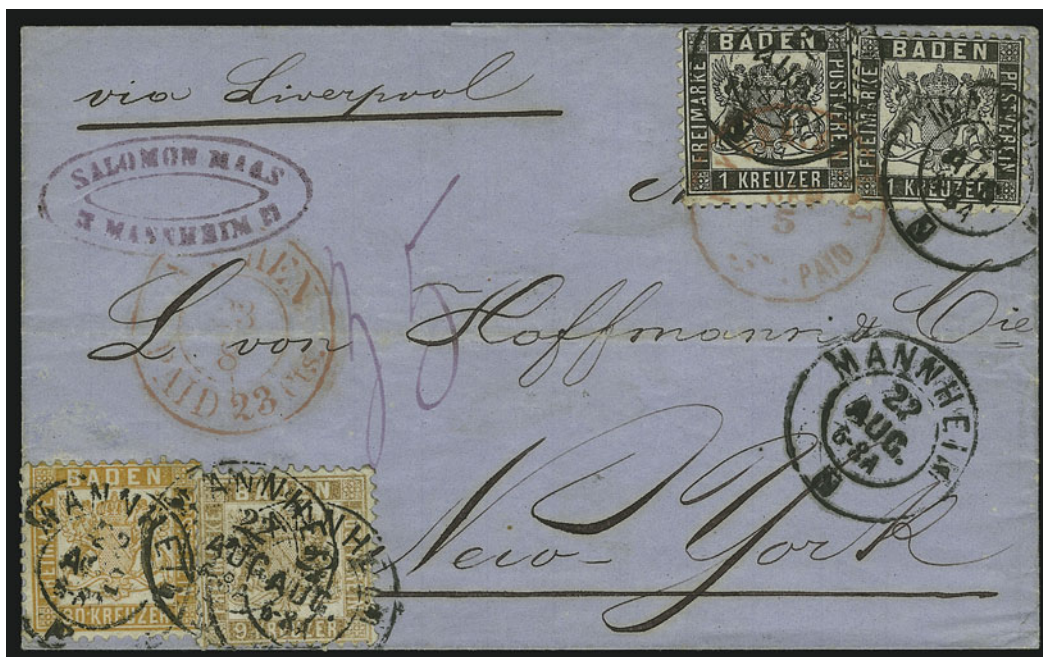 via Liverpool
SALOMON MAAS
MANNHEIM
BADEN
FREIMARKE
POSTVEREIN
1 KREUZER
AUG
BADEN
FREIMARKE
POSTVEREIN
1 KREUZER
5
PAID
23
8
PAID 23 Cts.
35
L. von Hoffmann & Cie
New York
MANNHEIM
22
AUG.
6-8A
BADEN
FREIMARKE
30 KREUZER
MANNHEIM
BADEN
9 KREUZER
MANNHEIM
22
AUG
AUG.
6-8A